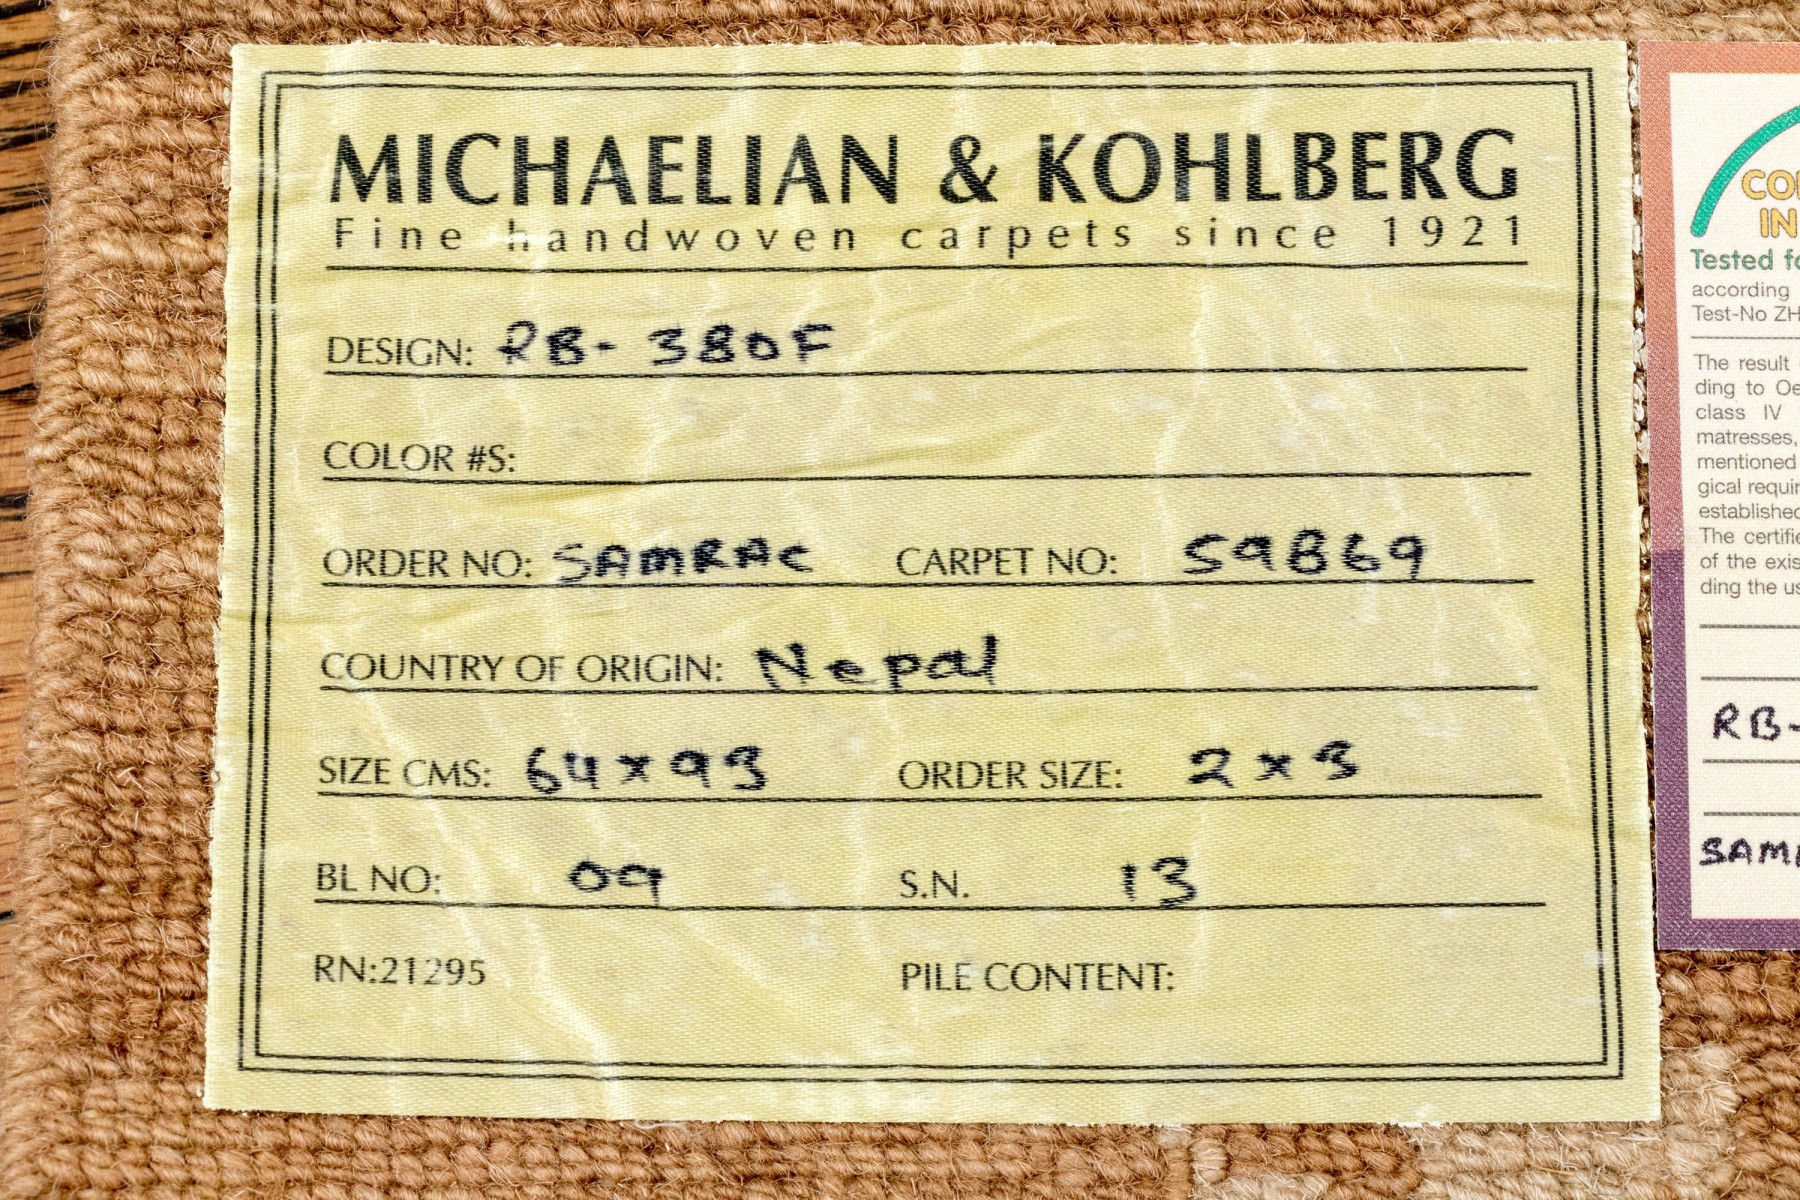 MICHAELIAN & KOHLBERG
Fine handwoven carpets since 1921
DESIGN: RB- 380F
COLOR #S:
ORDER NO: SAMRAC CARPET NO: 59869
COUNTRY OF ORIGIN: Nepal
SIZE CMS: 64 x 93 ORDER SIZE: 2 x 3
BL NO: 09 S.N. 13
RN:21295 PILE CONTENT:
IN
Tested
according
Test-No ZH
The result
ding to Oe
class IV
matresses,
mentioned
gical requir
established
The certifie
of the exis
ding the us
RB-
SAM